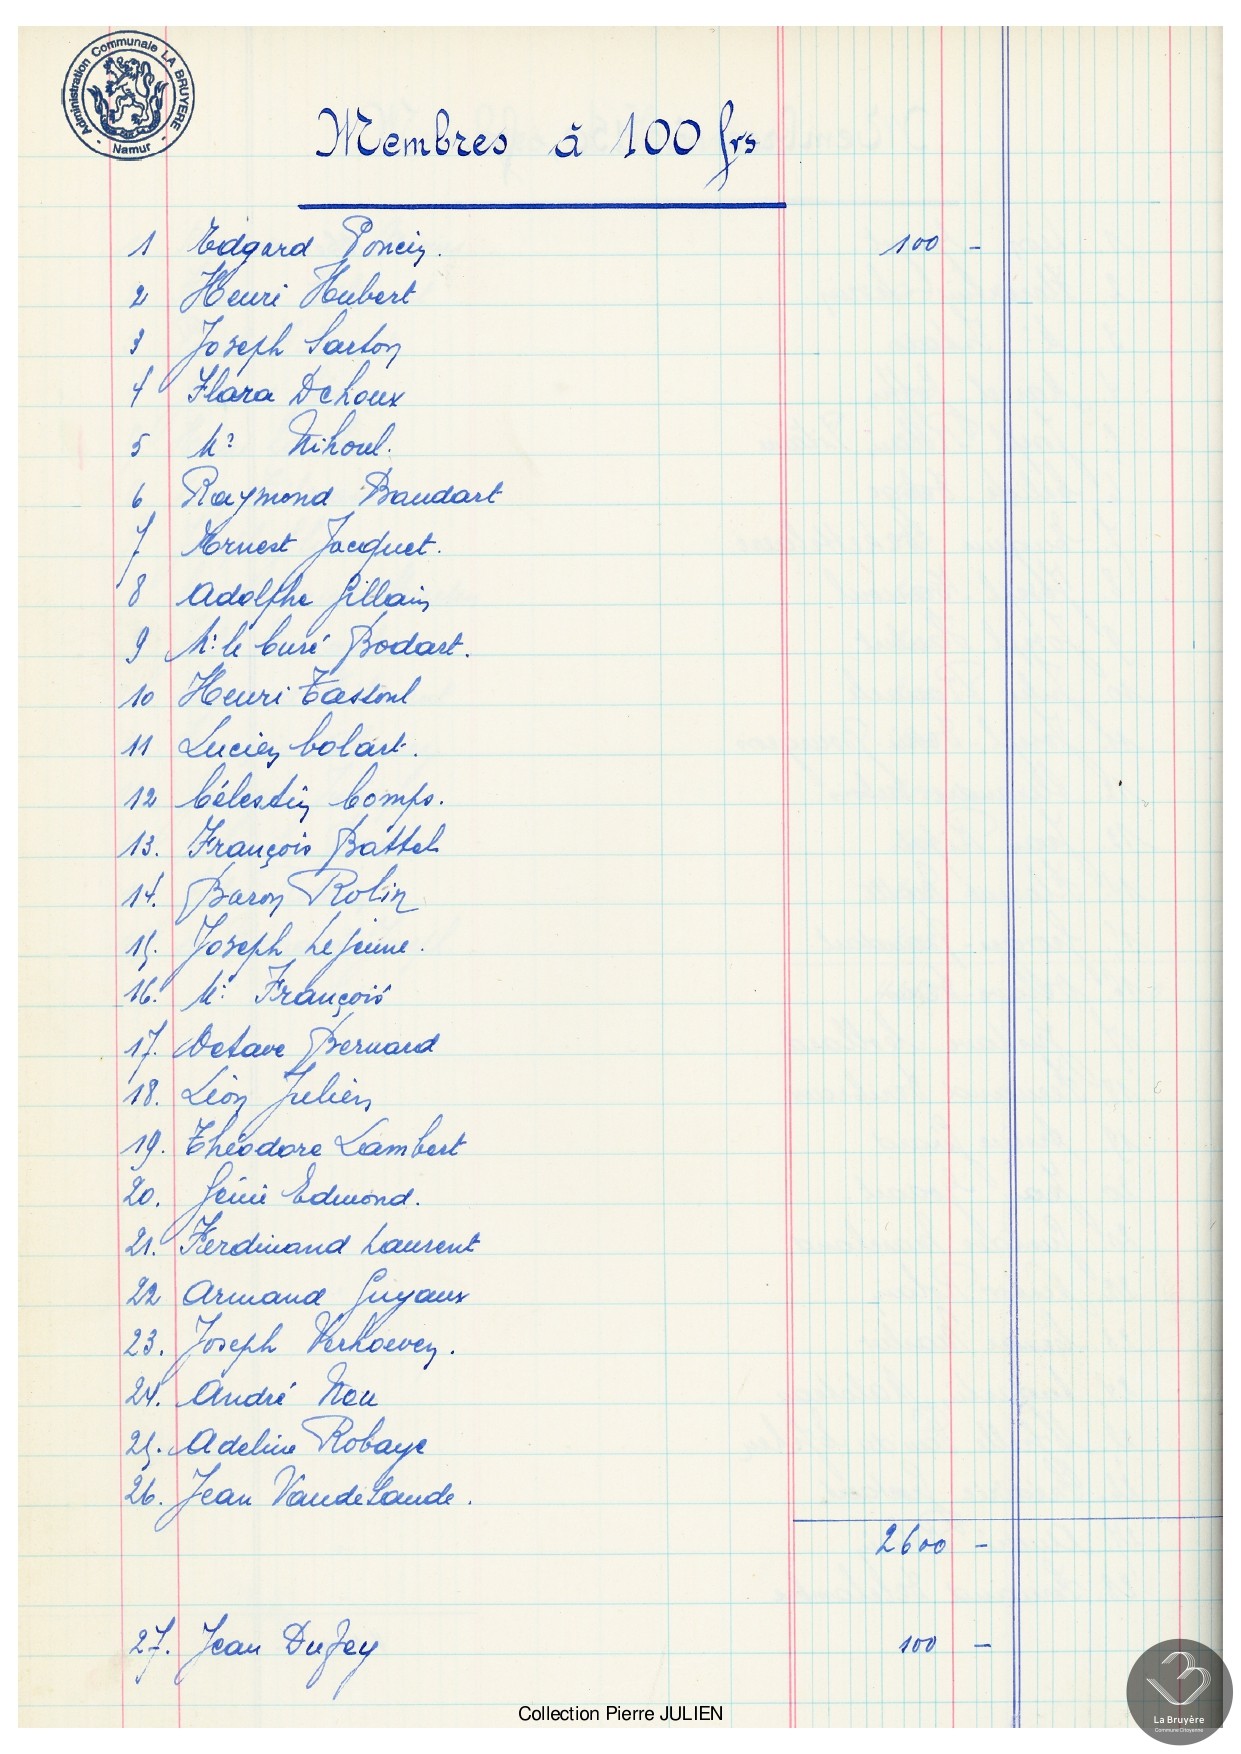 Administration Communale LA BRUYERE
- Namur -
Membres à 100 frs
1 Edgard Poncin. 100 -
2 Henri Hubert
3 Joseph Sarton
4 Flora Dehoux
5 Mr Nihoul.
6 Raymond Baudart
7 Ernest Jacquet.
8 Adolphe Gillain
9 Mr le Curé Bodart.
10 Henri Tassoul
11 Lucien Colart.
12 Célestin Comps.
13. François Battel
14. Baron Rolin
15. Joseph Lejeune.
16. Mr François
17. Octave Bernard
18. Léon Julien
19. Théodore Lambert
20. Génie Edmond.
21. Ferdinand Laurent
22 Armand Guyaux
23. Joseph Verhoeven.
24. André Neu
25. Adeline Robaye
26. Jean VandeLande.
2600 -
27. Jean Dufey 100 -
Collection Pierre JULIEN
La Bruyère
Commune Citoyenne